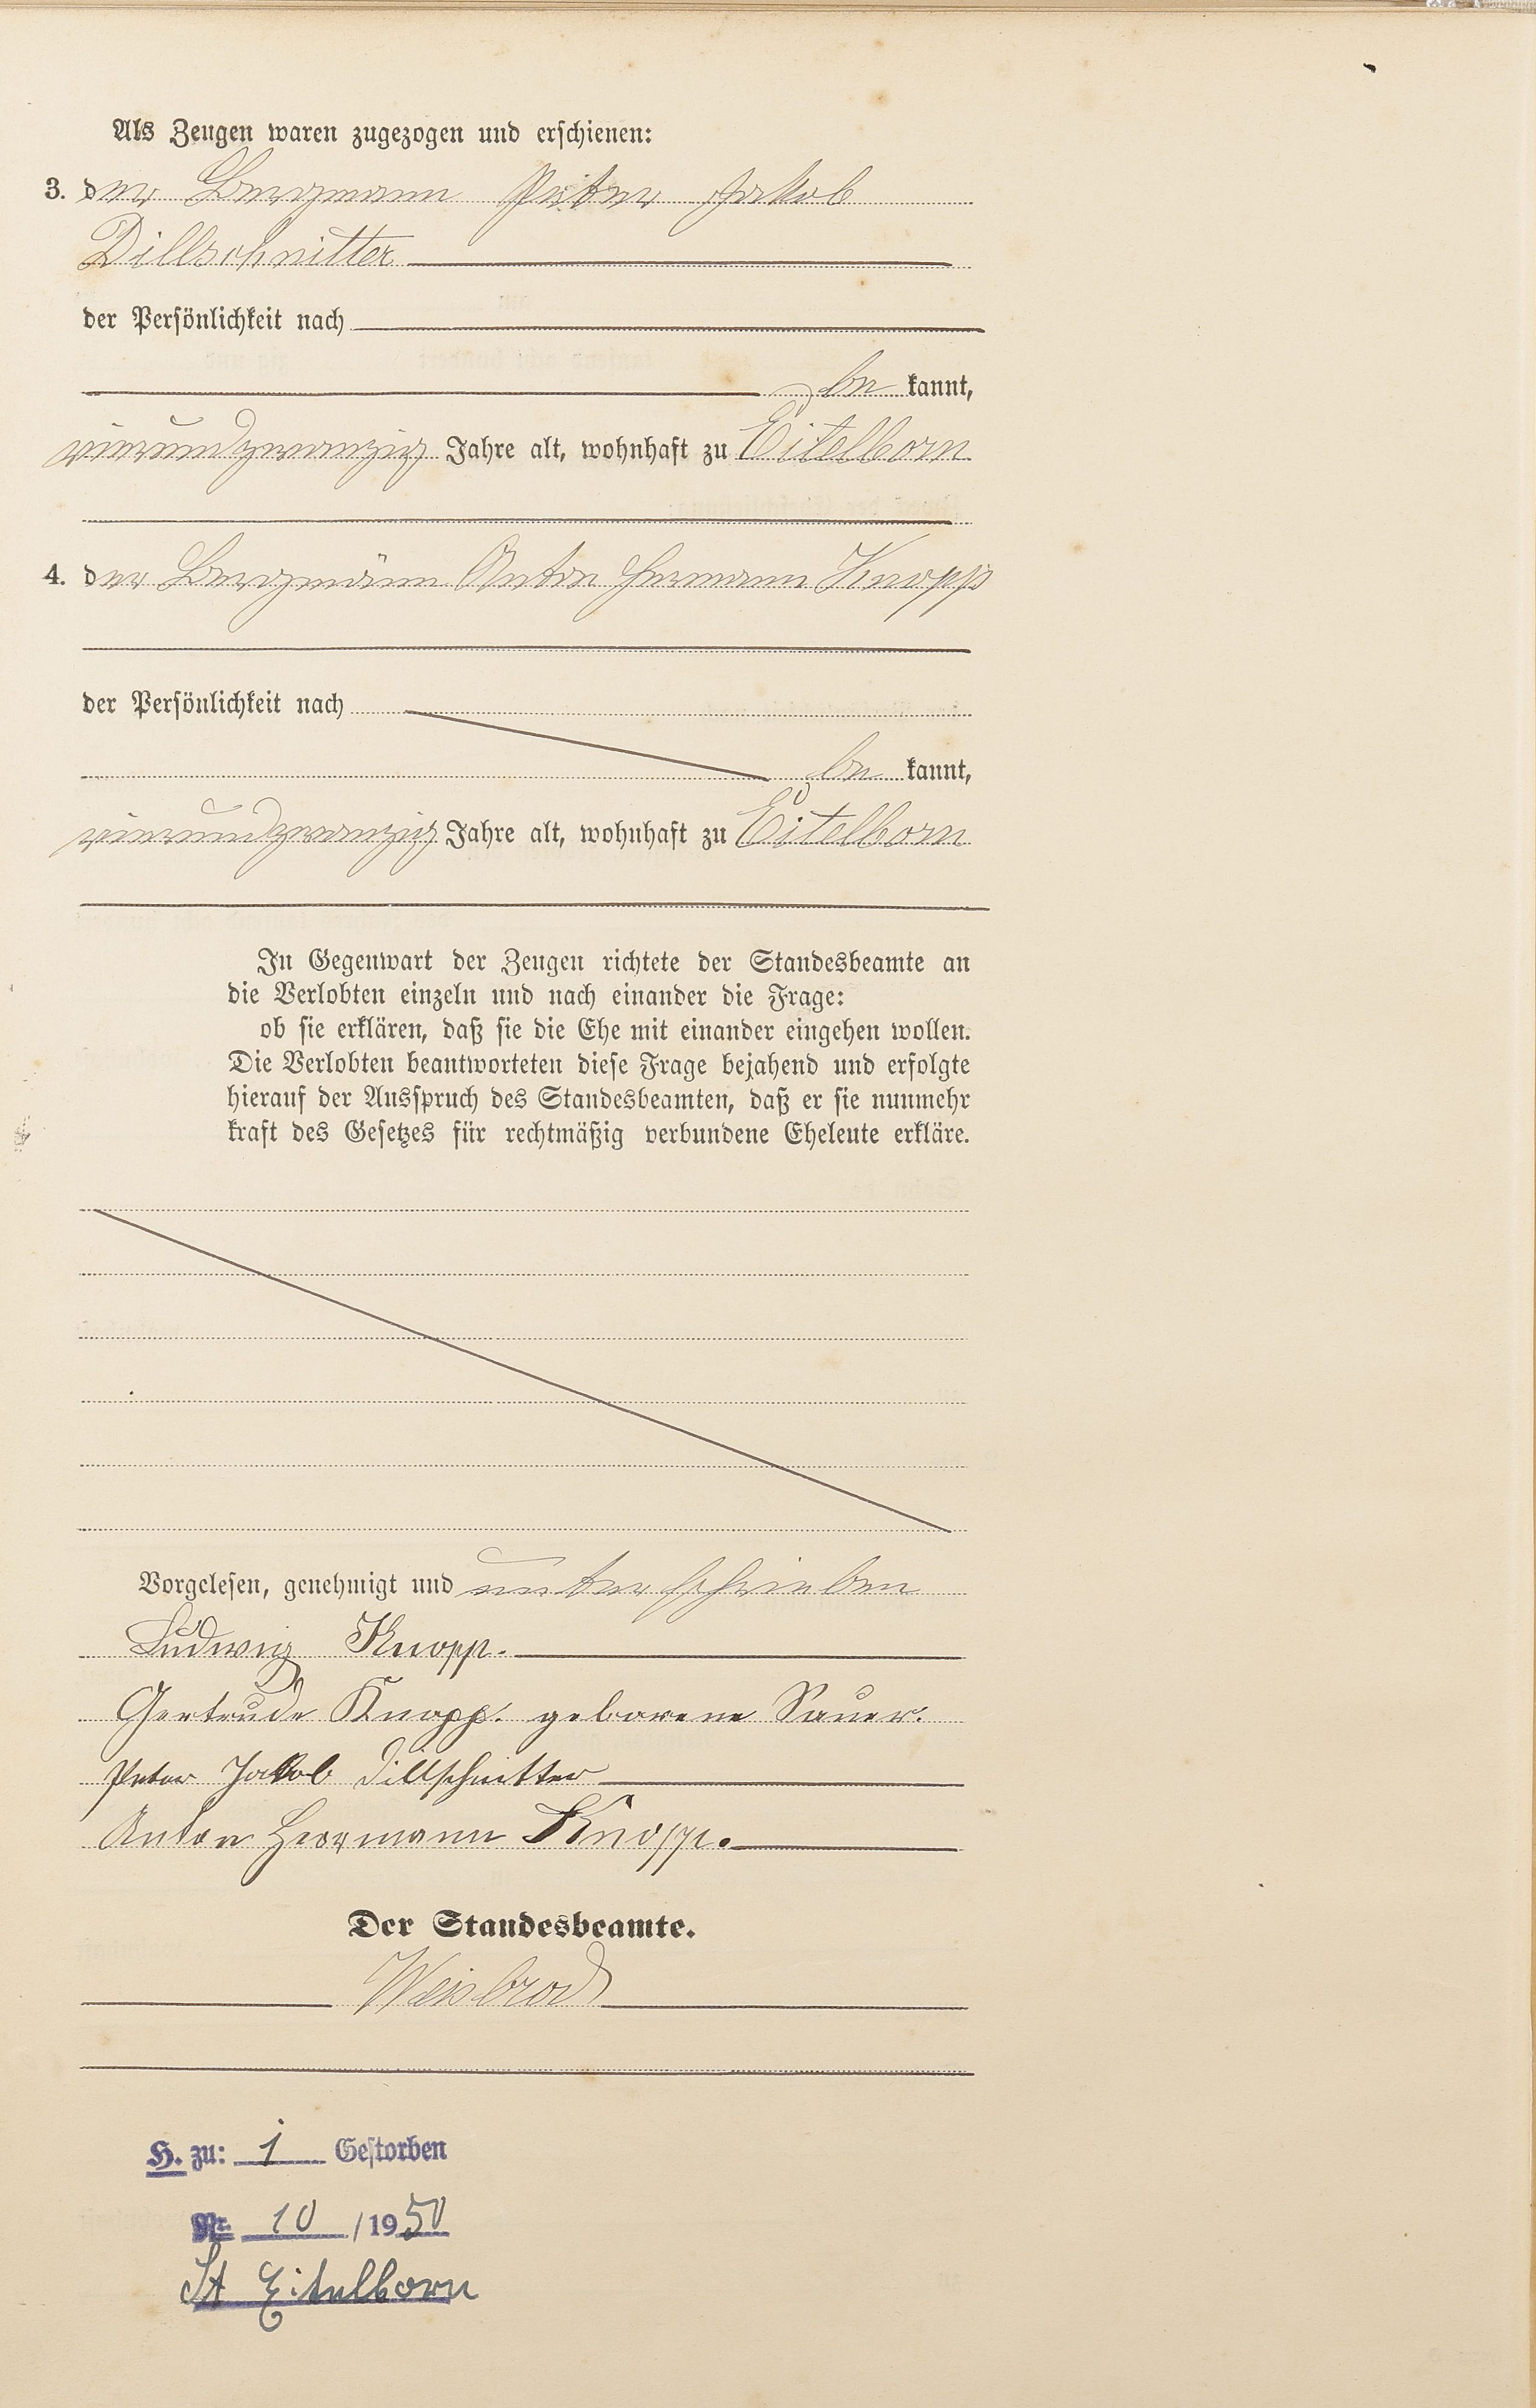 Als Zeugen waren zugezogen und erschienen:
3. der Bergmann Peter Jakob
Dillschnitter
der Persönlichkeit nach
be kannt,
vierundzwanzig Jahre alt, wohnhaft zu Eitelborn
4. der Bergmann Anton Hermann Knopp
der Persönlichkeit nach
be kannt,
vierundzwanzig Jahre alt, wohnhaft zu Eitelborn
In Gegenwart der Zeugen richtete der Standesbeamte an
die Verlobten einzeln und nach einander die Frage:
ob sie erklären, daß sie die Ehe mit einander eingehen wollen.
Die Verlobten beantworteten diese Frage bejahend und erfolgte
hierauf der Ausspruch des Standesbeamten, daß er sie nunmehr
kraft des Gesetzes für rechtmäßig verbundene Eheleute erkläre.
Vorgelesen, genehmigt und unterschrieben
Ludwig Knopp.
Gertrude Knopp. geborene Sauer.
Peter Jakob Dillschnitter
Anton Herrmann Knopp.
Der Standesbeamte.
Weisbrod
H. zu: 1 Gestorben
Nr. 10 /1950
St Eitelborn